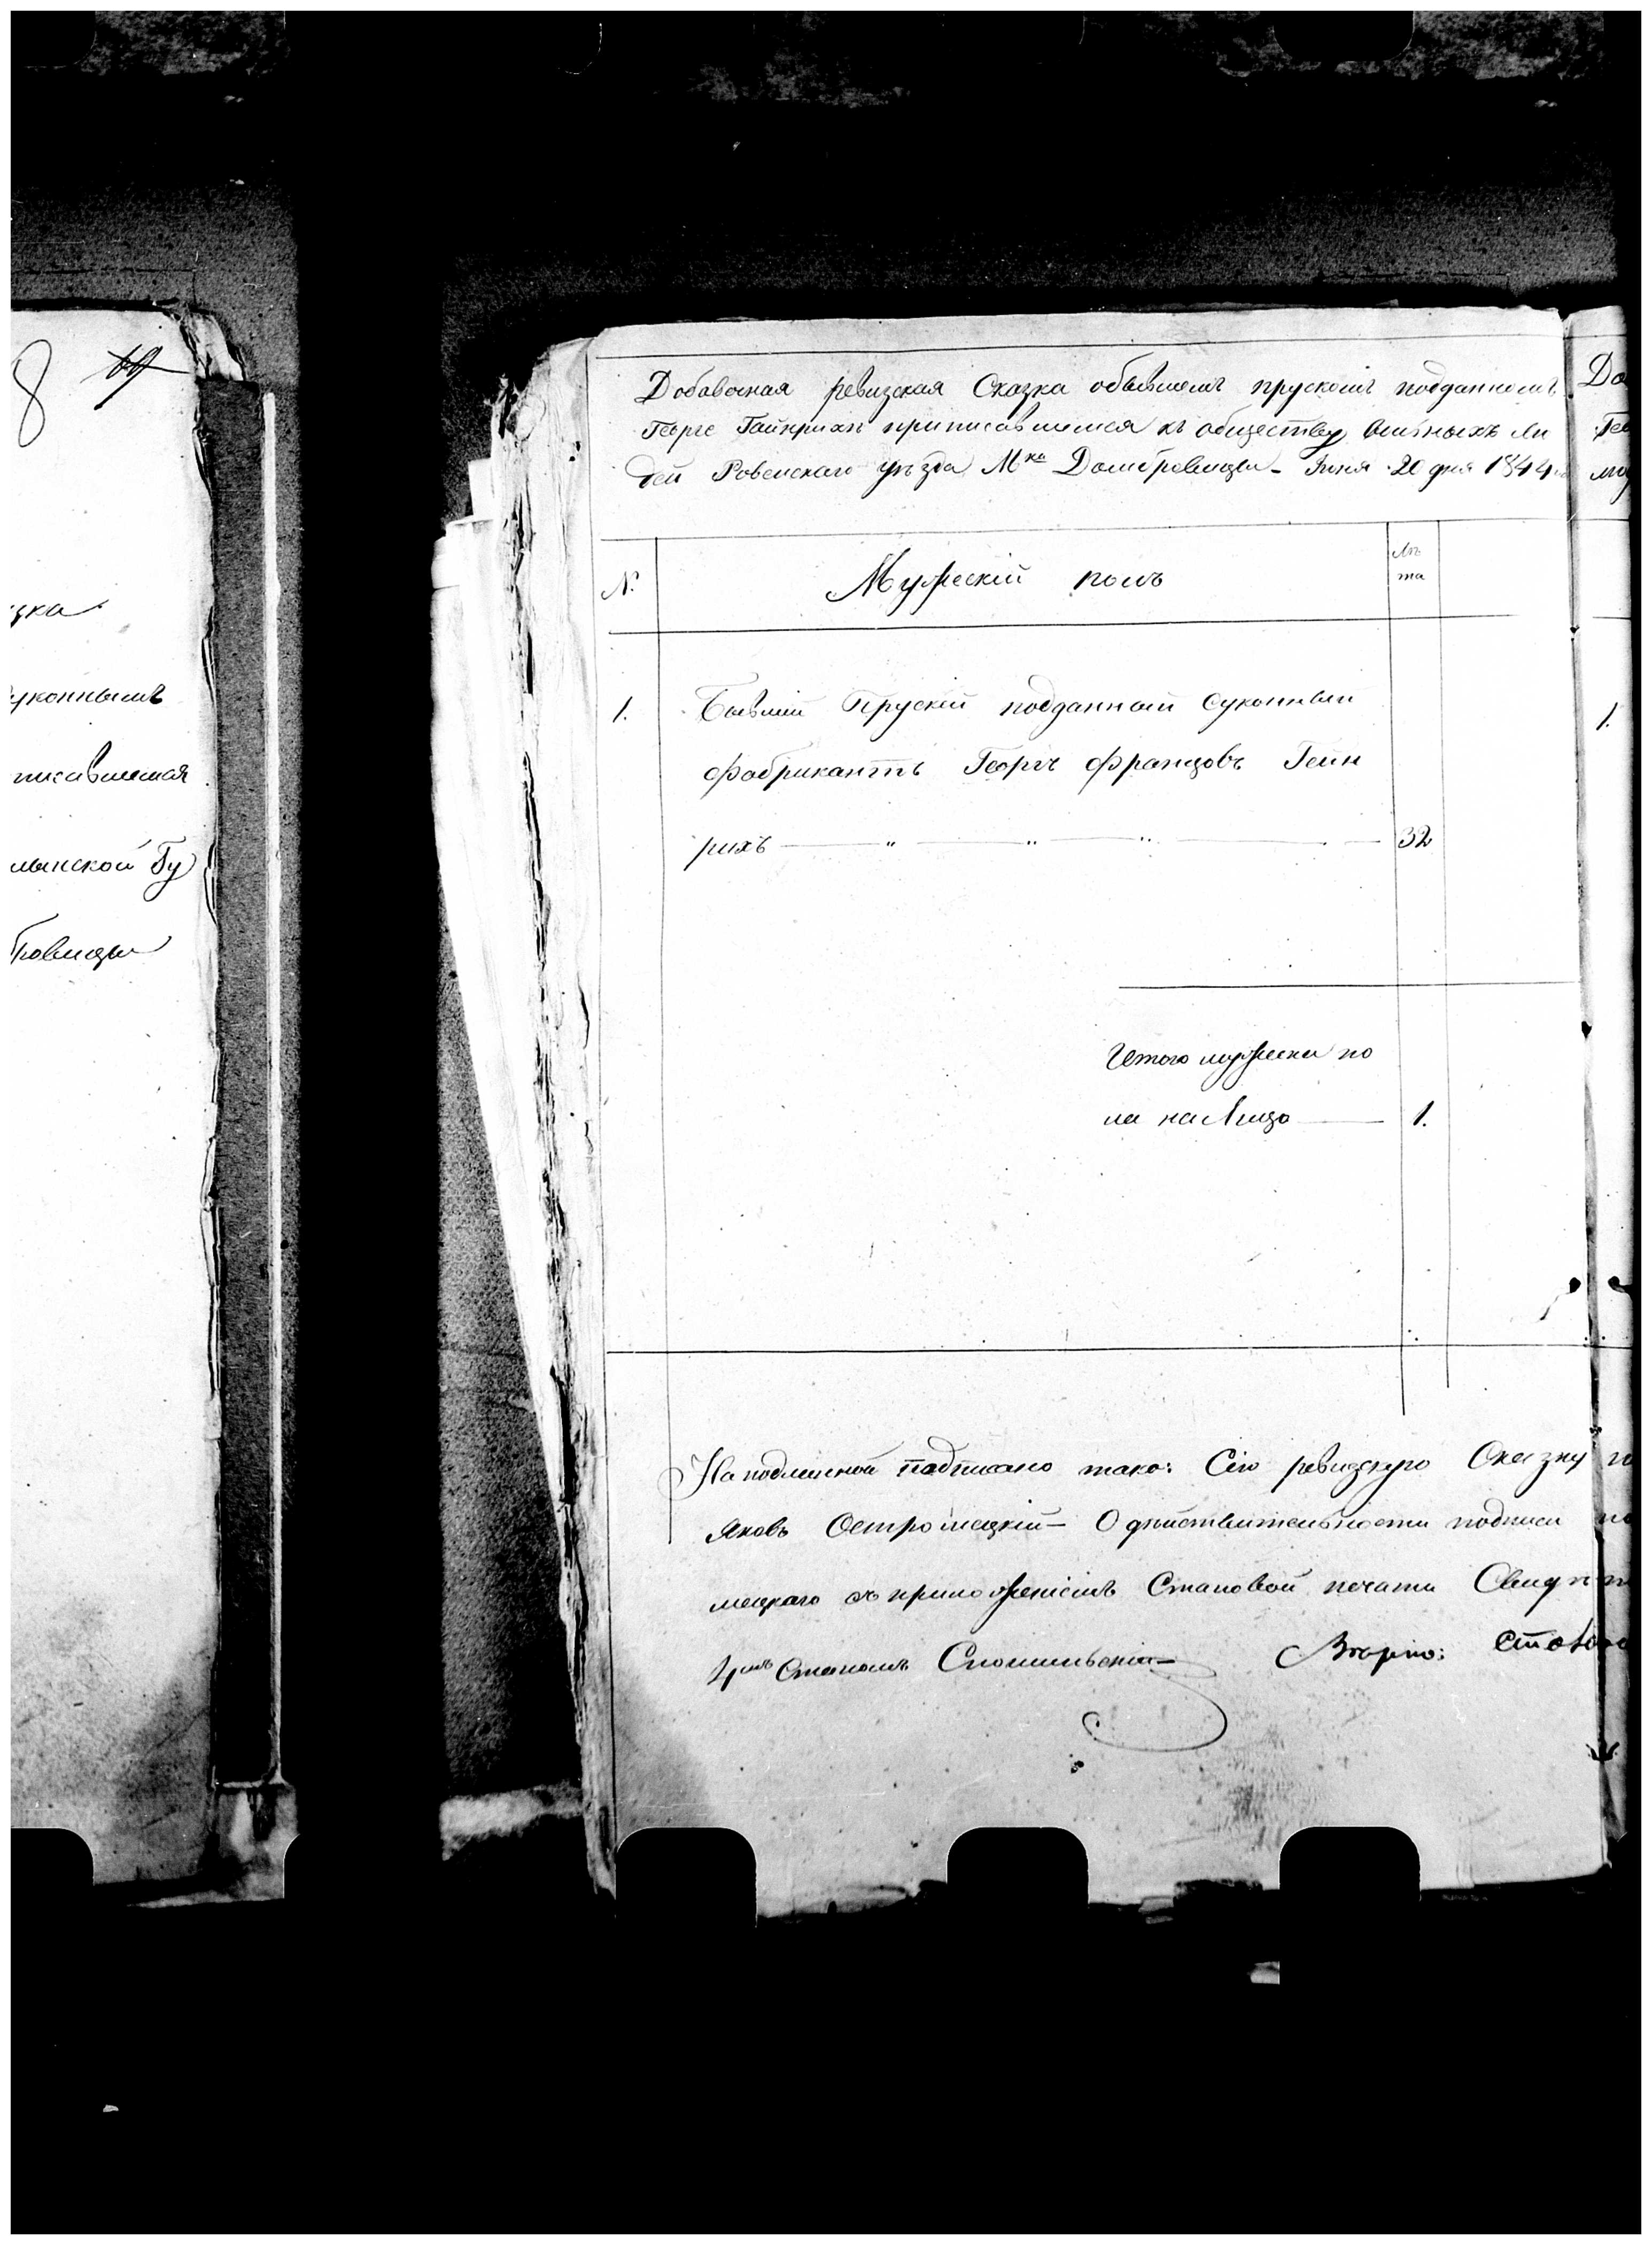 8
зка
уконнымъ
писавшемся
лынской Гу
бровицы
Добавочная ревизская Сказка обывшемъ прускомъ подданномъ
Георге Гайнрихѣ приписавшемся къ обществу вольныхъ лю
дей Ровенскаго уѣзда Мка Домбровицы - Іюня 20 дня 1844
До
Гео
№
Мужескій полъ
Лѣ
та
1.
Бывшій Прускій подданный Суконный
фабрикантъ Георгъ Францовъ Гейн
рихъ
32
1.
Итого мужеска по
ла на Лицо
1.
На подлинной подписано тако: Сію ревизскую Сказку
Яковъ Остромецкій - О дѣйствительности подписи
мецкаго съ приложеніемъ Становой печати Свидѣт
4мъ Станомъ
Вѣрно: